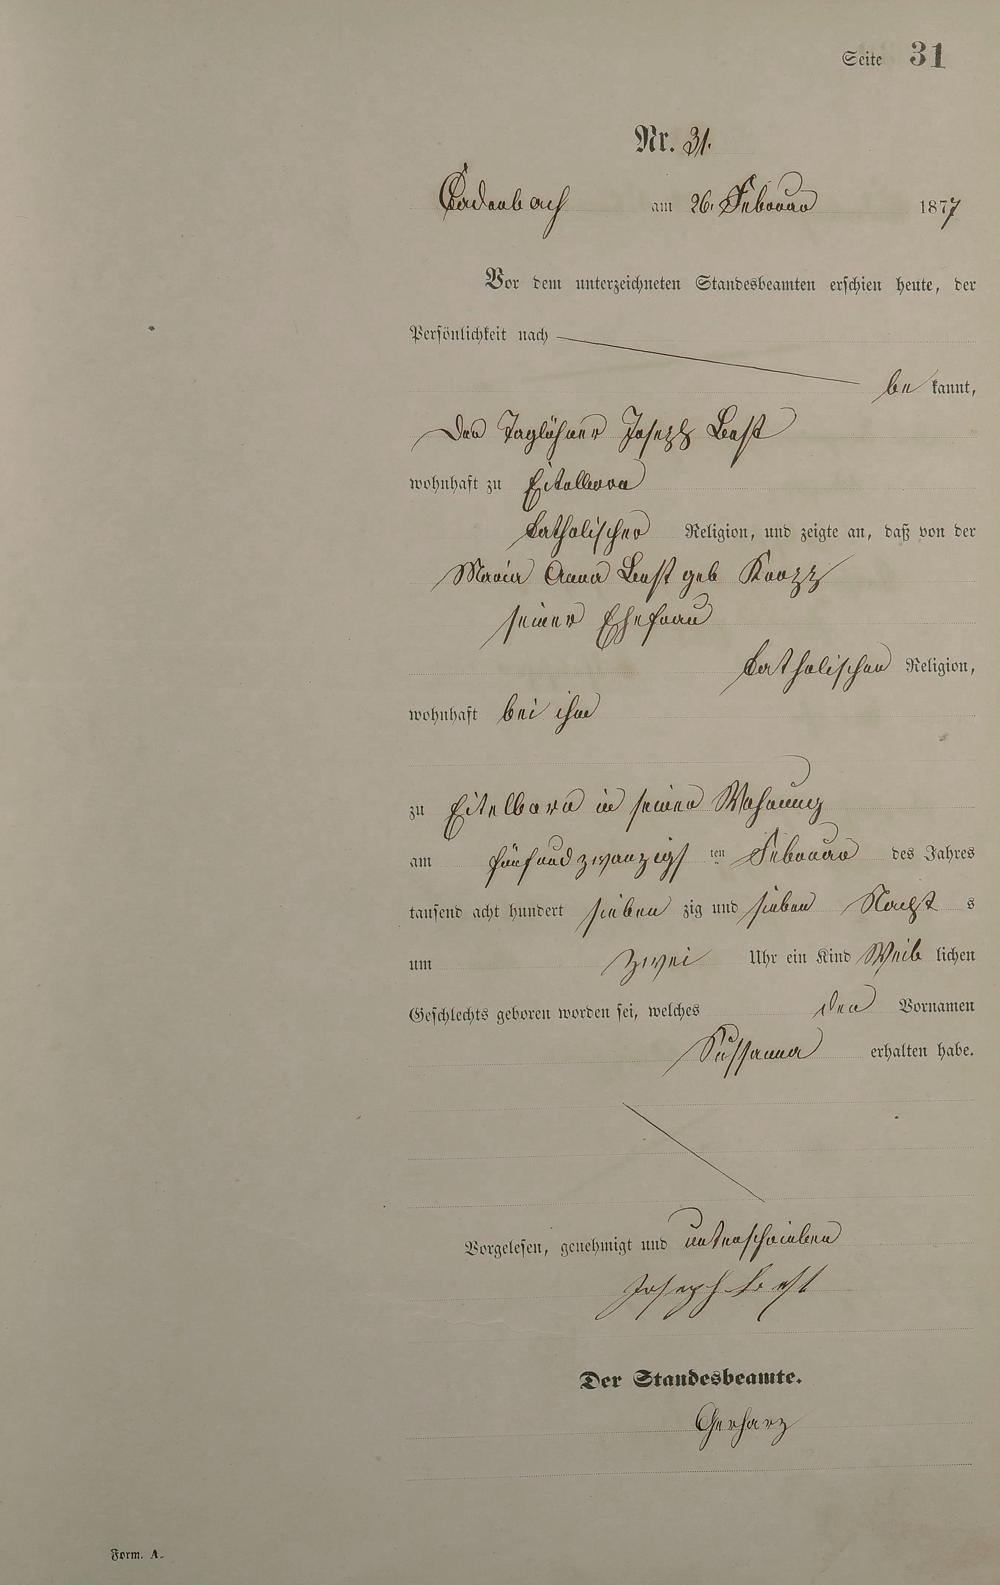 Seite 31
Nr. 31.
Cadenbach am 26. Februar 1877
Vor dem unterzeichneten Standesbeamten erschien heute, der
Persönlichkeit nach
be kannt,
Der Taglöhner Joseph Best
wohnhaft zu Eitelborn
katholischer Religion, und zeigte an, daß von der
Maria Anna Best geb
seiner Ehefrau
katholischen Religion,
wohnhaft bei ihm
zu Eitelborn in seiner Wohnung
am fünfundzwanzigs ten Februar des Jahres
tausend acht hundert sieben zig und sieben Nacht s
um zwei Uhr ein Kind Weib lichen
Geschlechts geboren worden sei, welches den Vornamen
Sussanna erhalten habe.
Vorgelesen, genehmigt und unterschrieben
Joseph Best
Der Standesbeamte.
Gerharz
Form. A.